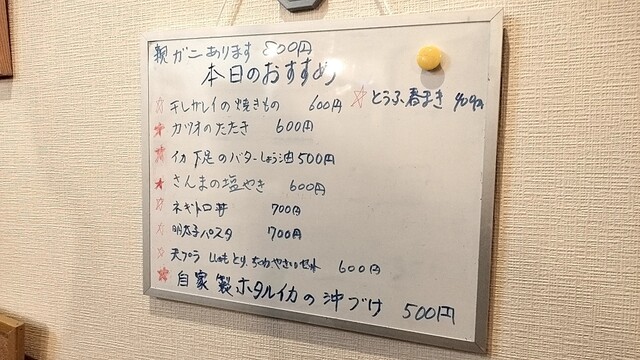 親ガニあります 800円
本日のおすすめ
☆ 干しカレイの焼きもの 600円
☆ とうふ春まき 400円
★ カツオのたたき 600円
★ イカ下足のバターしょう油 500円
★ さんまの塩やき 600円
☆ ネギトロ丼 700円
☆ 明太子パスタ 700円
☆ 天プラ 600円
★ 自家製ホタルイカの沖づけ 500円